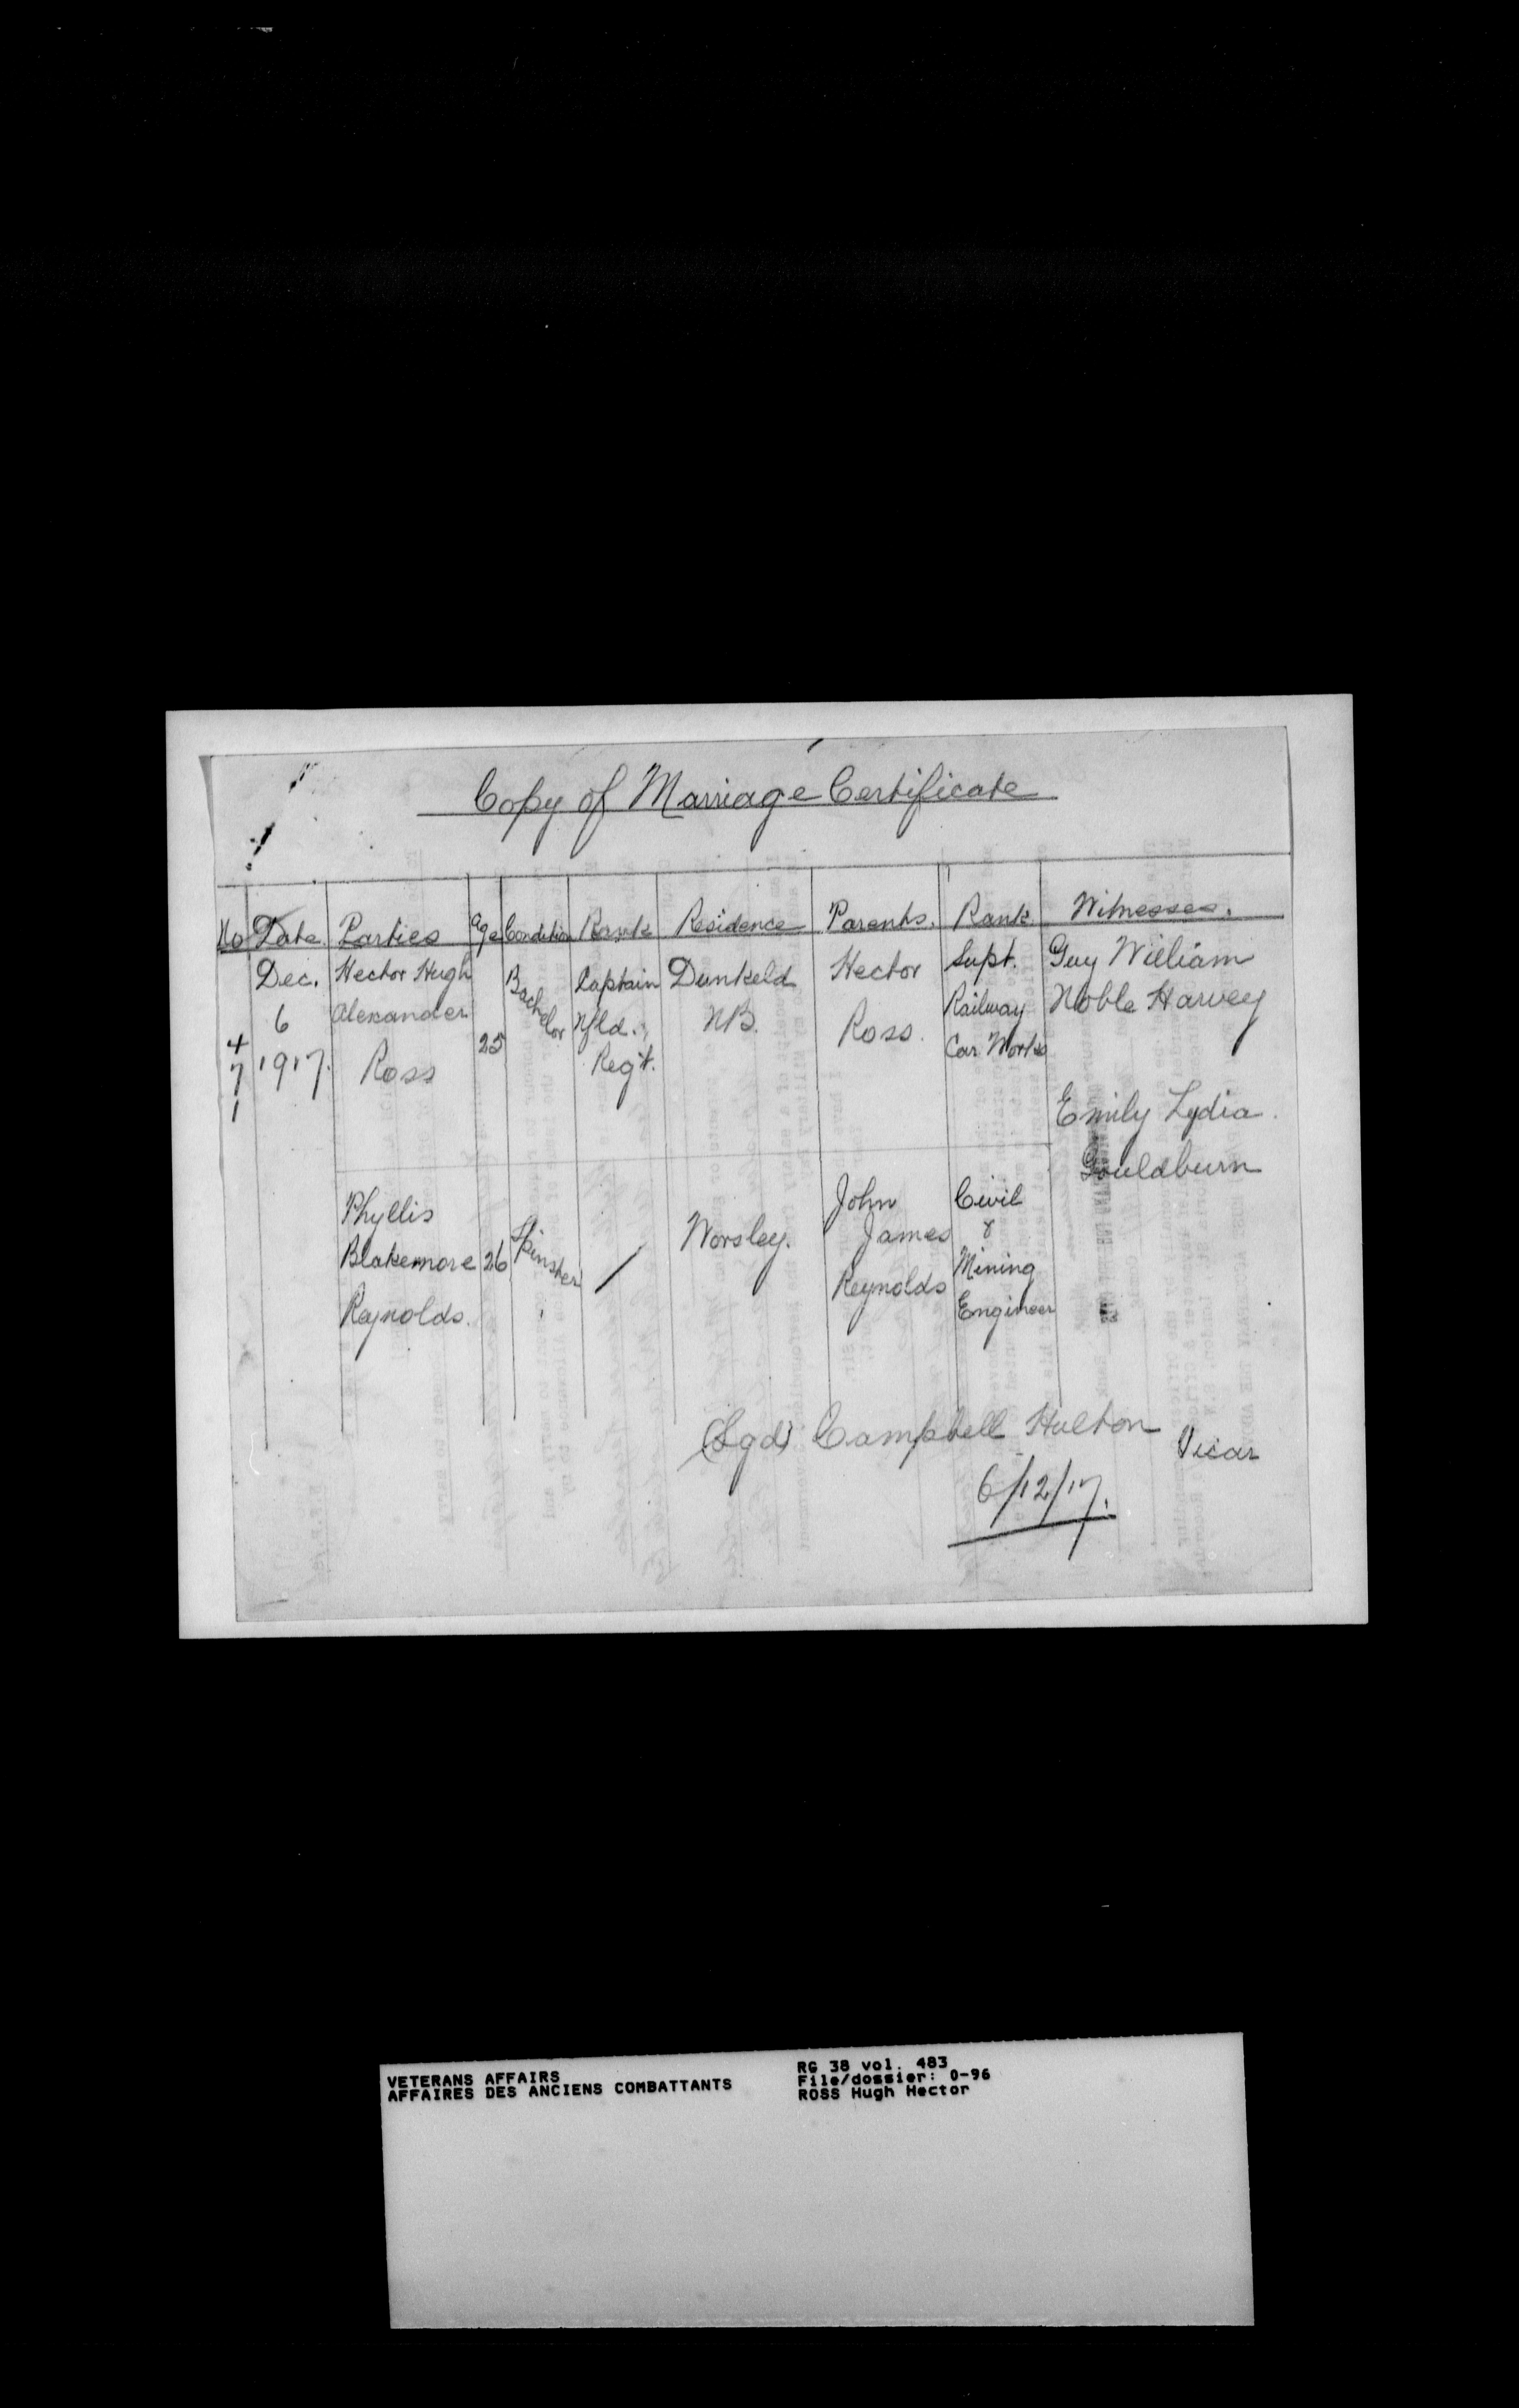 Copy of Marriage Certificate
No Date Parties Age Condition Rank Residence Parents. Rank Witnesses.
471
Dec.
6
1917.
Hector Hugh
Alexander
Ross
25
Bachelor
Captain
Nfld.
Reg't.
Dunkeld
NB.
Hector
Ross.
Supt.
Railway
Car Works
Guy William
Noble Harvey
Emily Lydia
Gouldburn
Phyllis
Blakemore
Reynolds.
26
Spinster
/
Worsley.
John
James
Reynolds
Civil
&
Mining
Engineer
(Sgd) Campbell Hulton Vicar
6/12/17.
VETERANS AFFAIRS
AFFAIRES DES ANCIENS COMBATTANTS
RG 38 vol. 483
File/dossier: 0-96
ROSS Hugh Hector